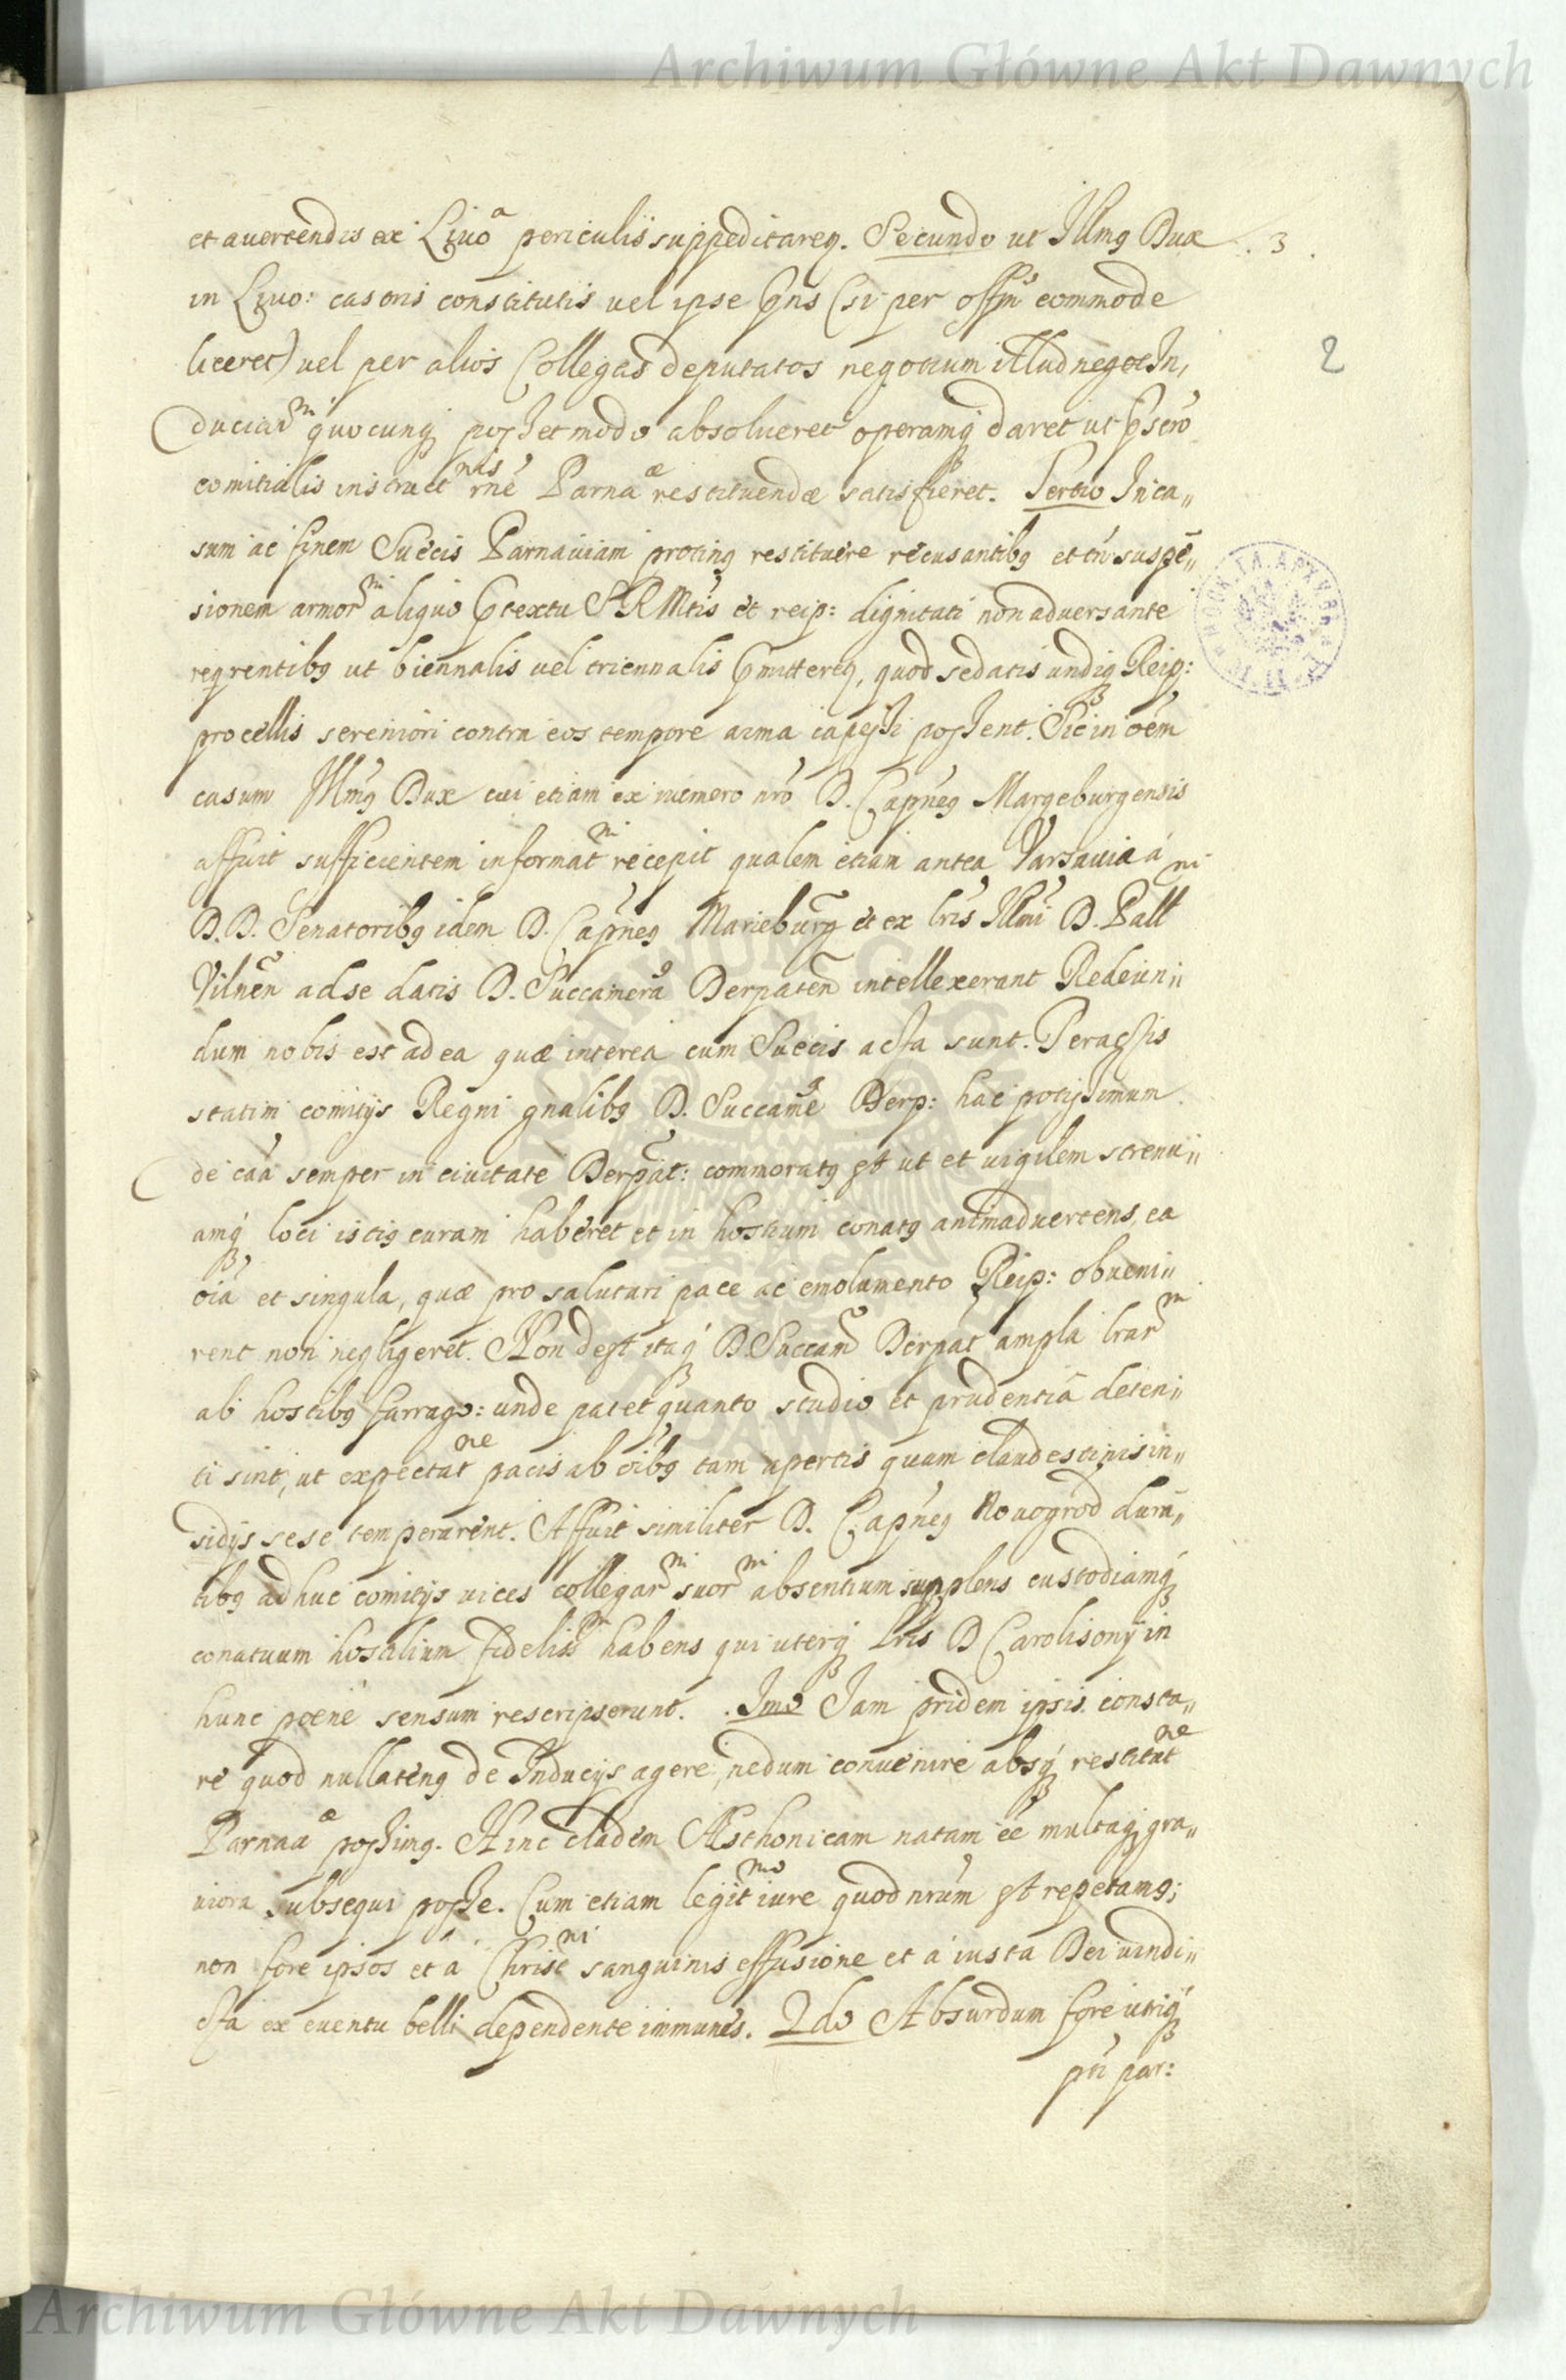 Archiwum Główne Akt Dawnych
et avertendis ex Livoa periculis suppeditareq. Secundo ut Illmq Dux . 3 .
in Livo: castris constitutis vel ipse pns (si per offm commode
liceret) vel per alios Collegas deputatos negotium illud negot In,
2
duciarm quocunq posset modo absolveret operamq daret ut
comitialis instruct rne Parnaæ restituendæ satisfieret. Tertio In ca„
sum ac finem Suecis Parnaviam protinq restituere recusantibq et tn suspē„
sionem armorm aliquo ptextu SRMtis et reip: dignitati non adversante
reqrentibq ut biennalis vel triennalis pmitteretq, quod sedatis undiq Reip:
procellis sereniori contra eos tempore arma capessi possent. Sic in oem
casum Illmq Dux cui etiam ex numero nro D. Capneq Margeburgensis
affuit sufficientem informatm recepit qualem etiam antea Varsavia á
D.D. Senatoribq idem D. Capneq Marieburg et ex lris Illmi D. Pallni
Vilnen ad se datis D. Succamera Derpaten intellexerant Redeun„
dum nobis est ad ea quæ interea cum Suecis acta sunt. Peractis
statim comitijs Regni gnalibq D. Succame Derp: hac potissimum
de caa semper in civitate Derpat: commoratq est ut et vigilem strenu„
amq loci istiq curam haberet et in hostium conatq animadvertens, ea
oia et singula, quæ pro salutari pace ac emolumento Reip: obveni„
rent non negligeret. Non dest itaq D. Succam Derpat ampla lrarm
ab hostibq farrago: unde patet quanto studio et prudentiâ deten„
ti sint, ut expectatne pacis ab oibq tam apertis quam clandestinis in„
sidijs sese temperarent. Affuit similiter D. Capneq Novogrod durā„
tibq adhuc comitijs vices collegarm suorm absentium supplens custodiamq
conatuum hostilium fidelissm habens qui uterq lris D Carolisonij in
hunc poene sensum rescripserunt. . Imo Jam pridem ipsis consta„
re quod nullatenq de Inducijs agere, nedum convenire absq restitutne
Parnaaæ possimq. Hinc cladem Æsthonicam natam ee multaq gra„
viora subsequi posse. Cum etiam legitmo iure quod nrum est repetamq;
non fore ipsos et á Christni sanguinis effusione et á iusta Dei vindi„
cta ex eventu belli dependente immunes. 2do Absurdum fore utiq
pti par:
Archiwum Główne Akt Dawnych